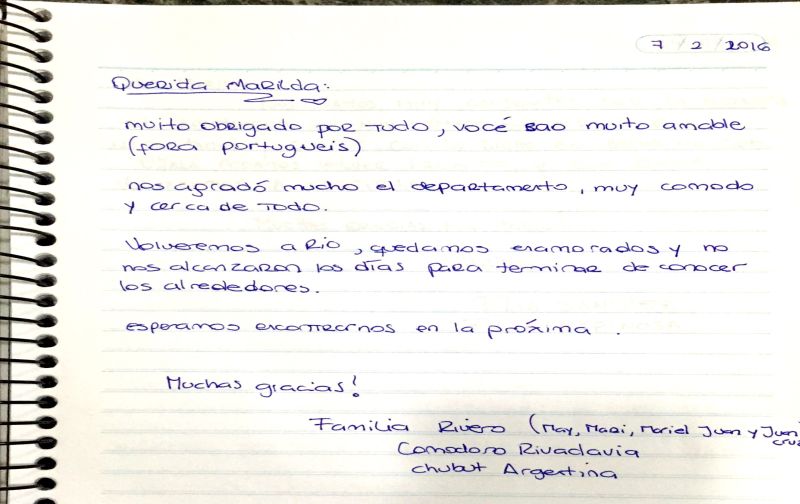 7/2/2016
Querida Marilda:
muito obrigado por tudo, você sao muito amable
(fora portugueis)
nos agradó mucho el departamento, muy comodo
y cerca de todo.
Volveremos a Rio, quedamos enamorados y no
nos alcanzaron los días para terminar de conocer
los alrededores.
esperamos encontrarnos en la próxima.
Muchas gracias!
Familia Rivero (May, Mari, Mariel Juan y Juan
cruz
Comodoro Rivadavia
chubut Argentina